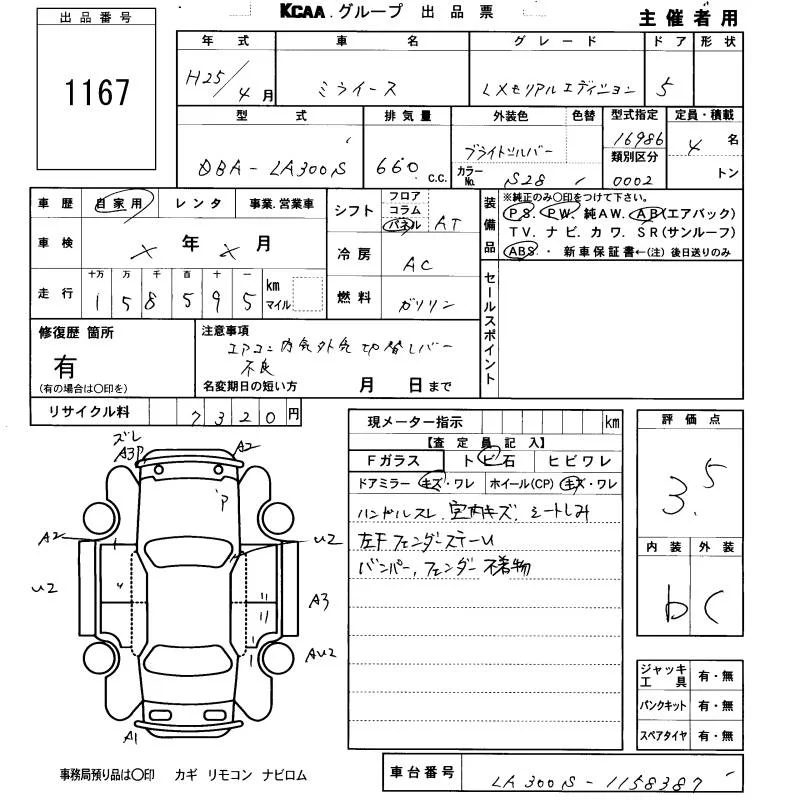 KCAA.グループ 出品票
主催者用
出品番号
1167
年式 車名 グレード ドア 形状
H25/4月 ミライース Lメモリアルエディション 5
型式 排気量 外装色 色替 型式指定 定員・積載
DBA-LA300S 660 c.c. ブライトシルバー 16986 4名
カラーNo. S28 類別区分 0002 トン
車歴 自家用 レンタ 事業.営業車
車検 × 年 × 月
走行 十万 万 千 百 十 一 km マイル
158595
シフト フロア コラム パネル AT
冷房 AC
燃料 ガソリン
装備品 ※純正のみ〇印をつけて下さい。
PS. PW. 純AW. AB(エアバック)
TV. ナビ. カワ. SR(サンルーフ)
ABS.・新車保証書←(注)後日送りのみ
セールスポイント
修復歴 箇所
有
(有の場合は〇印を)
注意事項
エアコン内気外気切替レバー
不良
名変期日の短い方 月 日まで
リサイクル料 7320円
現メーター指示 km
【査定員記入】
Fガラス トビ石 ヒビワレ
ドアミラー キズ・ワレ ホイール(CP) キズ・ワレ
ハンドルスレ. 室内キズ. シートしみ
左FフェンダーステーU
バンパー, フェンダー 不着物
評価点
3.5
内装 外装
b C
ジャッキ工具 有・無
パンクキット 有・無
スペアタイヤ 有・無
ズレ
A3P A2
P
A2 U2
U2 A3
AU2
A1
事務局預り品は〇印 カギ リモコン ナビロム
車台番号 LA300S-1158387